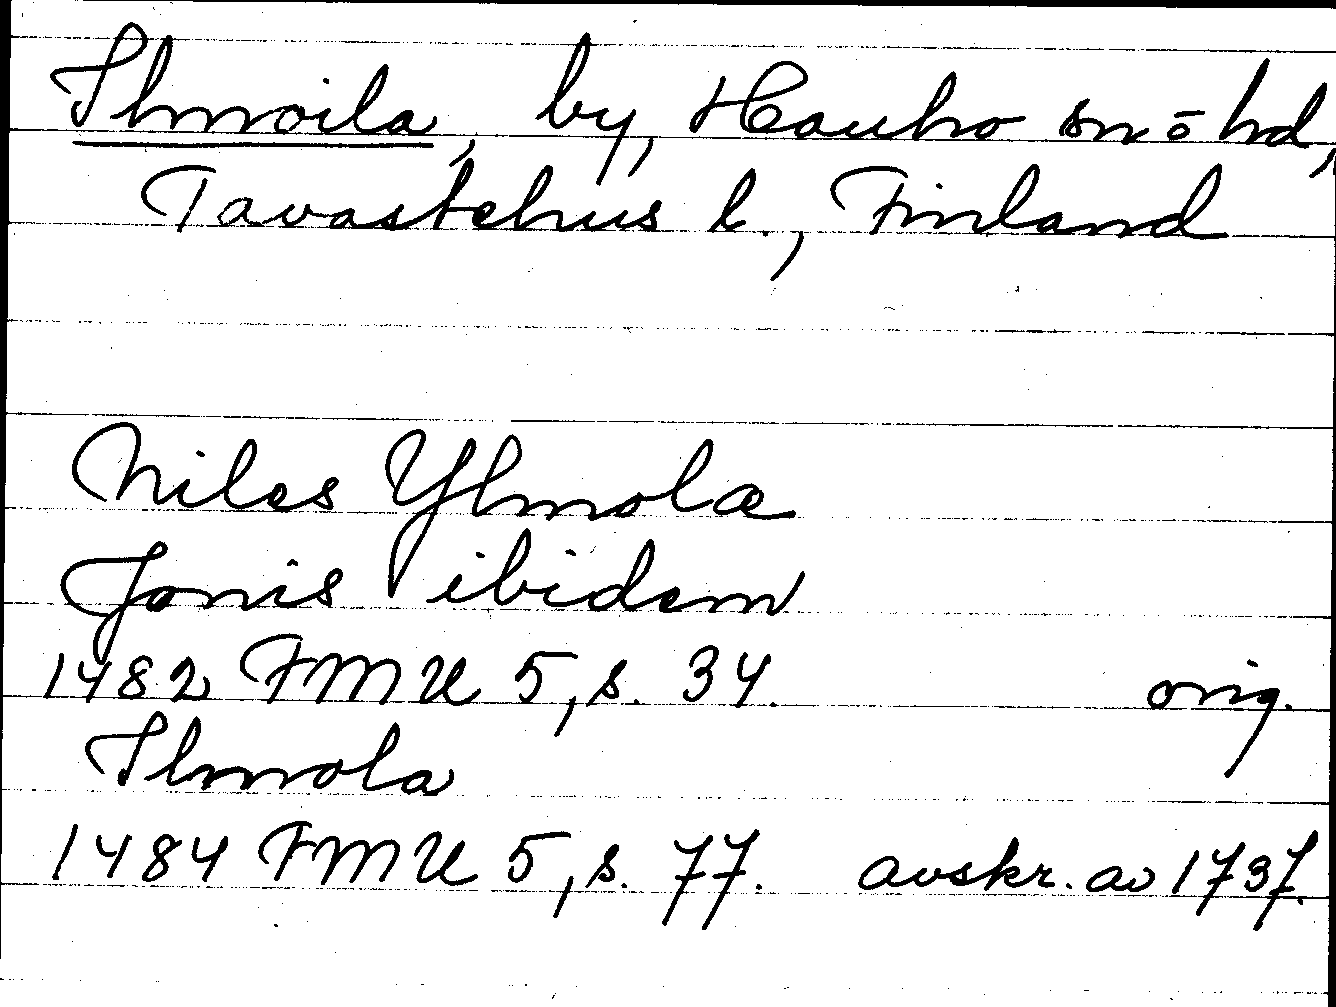 Ilmoila, by, Hauho sn o hd,
Tavastehus l., Finland
Niles Ylmola
Jonis ibidem
1482 FMU 5, s. 34. orig.
Ilmola
1484 FMU 5, s. 77. avskr. av 1737.